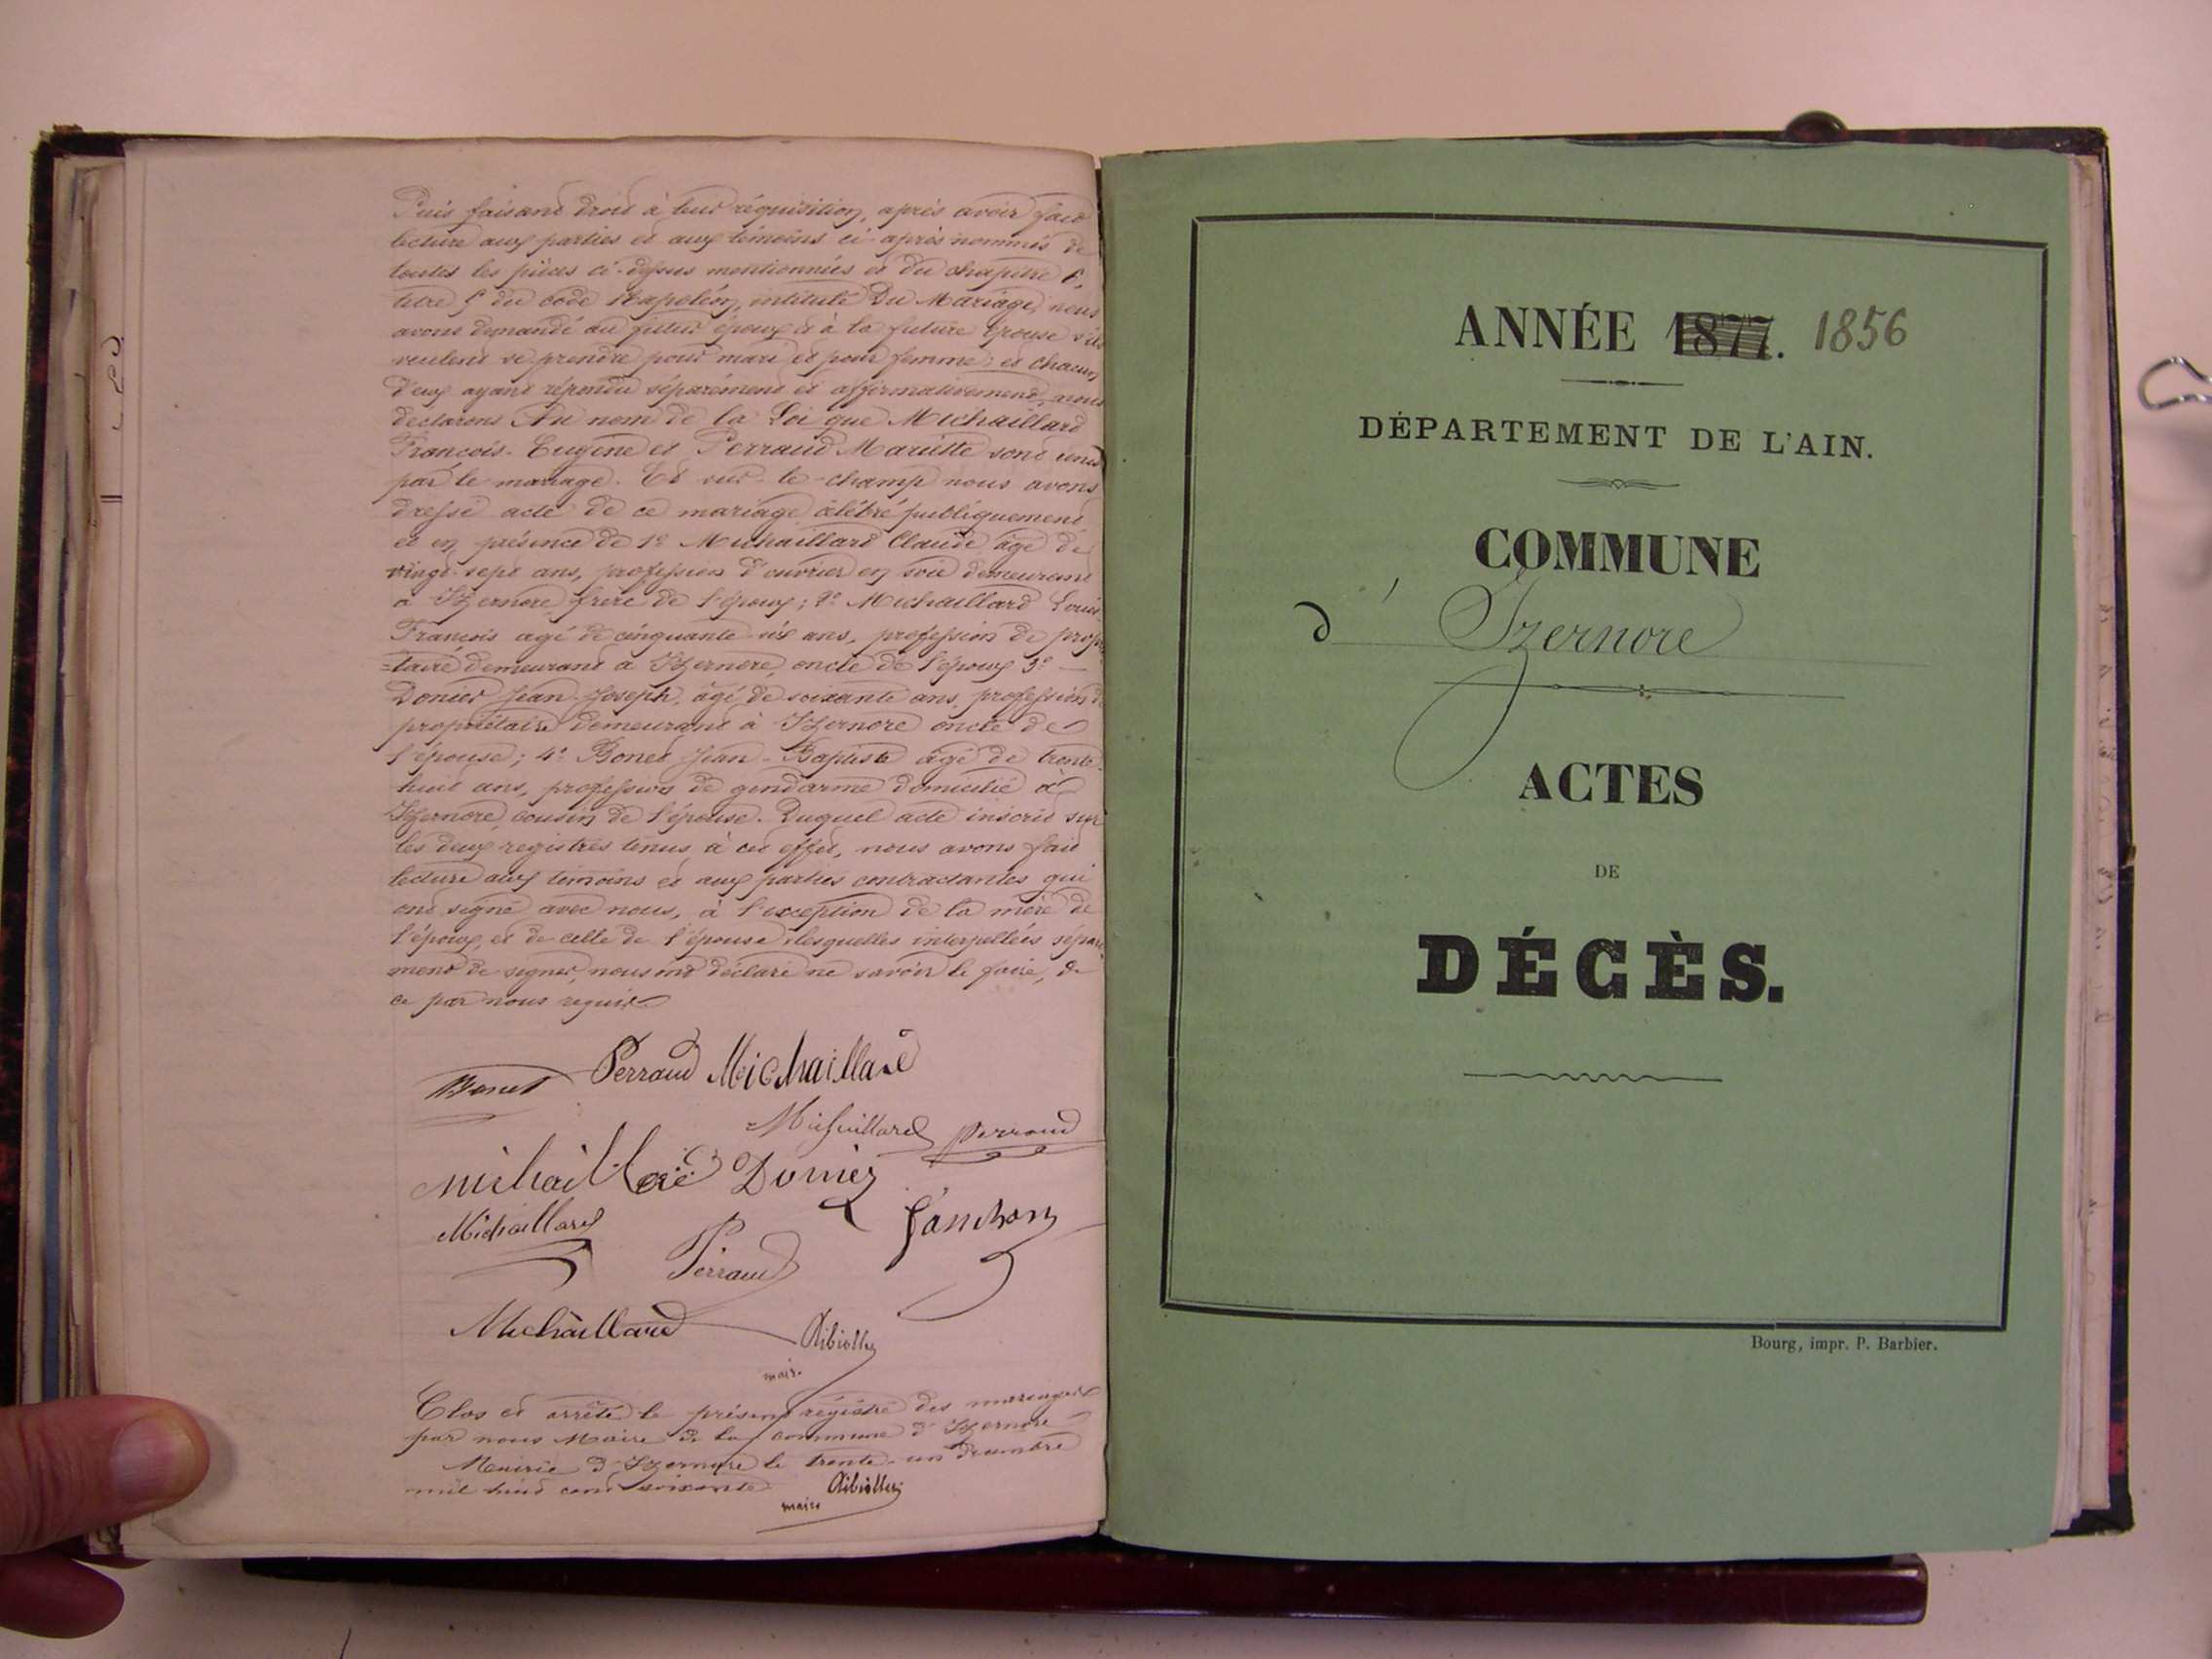 Puis faisant droit à leur réquisition, après avoir fait
lecture aux parties et aux témoins ci-après nommés de
toutes les pièces ci-dessus mentionnées et du chapitre 6,
titre 5 du code Napoléon, intitulé Du Mariage, nous
avons demandé au futur époux et à la future épouse s'ils
veulent se prendre pour mari et pour femme; et chacun
d'eux ayant répondu séparément et affirmativement, nous
déclarons Au nom de la Loi que Michaillard
François-Eugène et Perraud Mariette sont unis
par le mariage. Et sur-le-champ nous avons
dressé acte de ce mariage célébré publiquement
et en présence de 1º Michaillard Claude âgé de
vingt-sept ans, profession d'ouvrier en soie demeurant
à Izernore frère de l'époux; 2º Michaillard Louis
François agé de cinquante-six ans, profession de prop
=taire demeurant à Izernore, oncle de l'époux 3º
Donier Jean-Joseph, âgé de soixante ans, profession d
propriétaire demeurant à Izernore oncle de
l'épouse; 4º Bonet Jean-Baptiste âgé de trente-
huit ans, profession de gendarme domicilié à
Izernore, cousin de l'épouse. Duquel acte inscrit sur
les deux registres tenus à cet effet, nous avons fait
lecture aux témoins et aux parties contractantes qui
ont signé avec nous, à l'exception de la mère de
l'époux, et de celle de l'épouse lesquelles interpellées séparé
ment de signer, nous ont déclaré ne savoir le faire, de
ce par nous requis
Bonet Perraud Michaillard
Michaillard Perraud
Michaillard Donier
Michaillard Perraud
Michaillard
maire
Clos et arrêté le présent régistre des mariages
par nous Maire de la commune d'Izernore
Mairie d'Izernore le trente-un décembre
mil huit cent soixante
maire
ANNÉE 1877. 1856
DÉPARTEMENT DE L'AIN.
COMMUNE
d' Izernore
ACTES
DE
DÉCÈS.
Bourg, impr. P. Barbier.